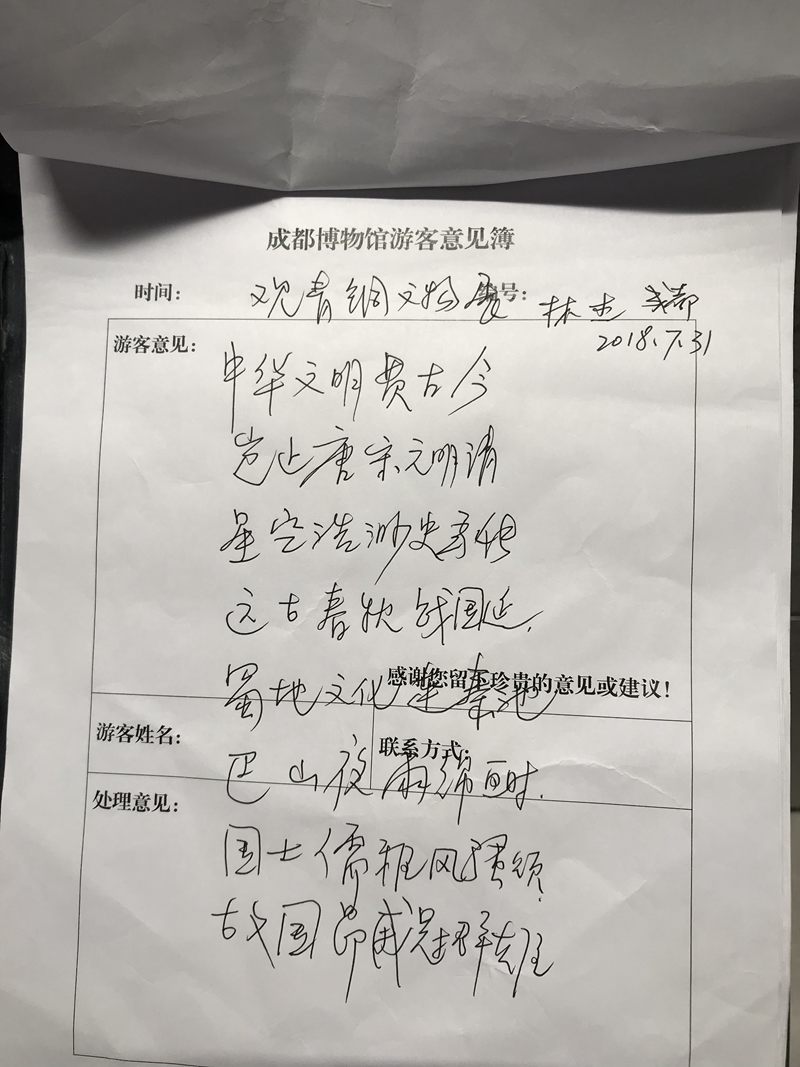 成都博物馆游客意见簿
时间： 观青铜文物展 编号： 林杰 成都
2018.7.31
游客意见：
中华文明贯古今
岂止唐宋元明清
星空浩渺史
远古春秋战国延.
感谢您留下珍贵的意见或建议！
蜀地文化连秦地
游客姓名：
联系方式：
巴山夜雨绵时.
处理意见：
国士儒雅风骚领.
故国昂威冠群雄